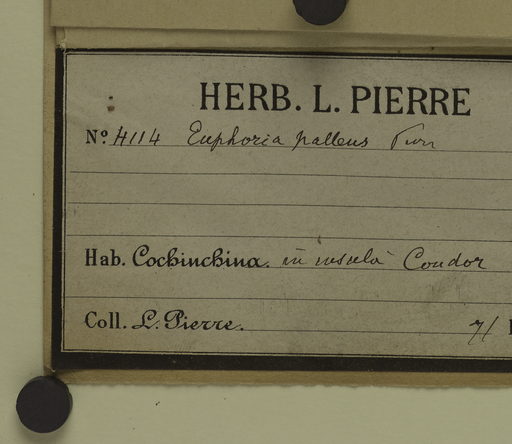 HERB. L. PIERRE
Nº. 4114 Euphoria pallens
Hab. Cochinchina. in insula Condor
Coll. L. Pierre. 7/